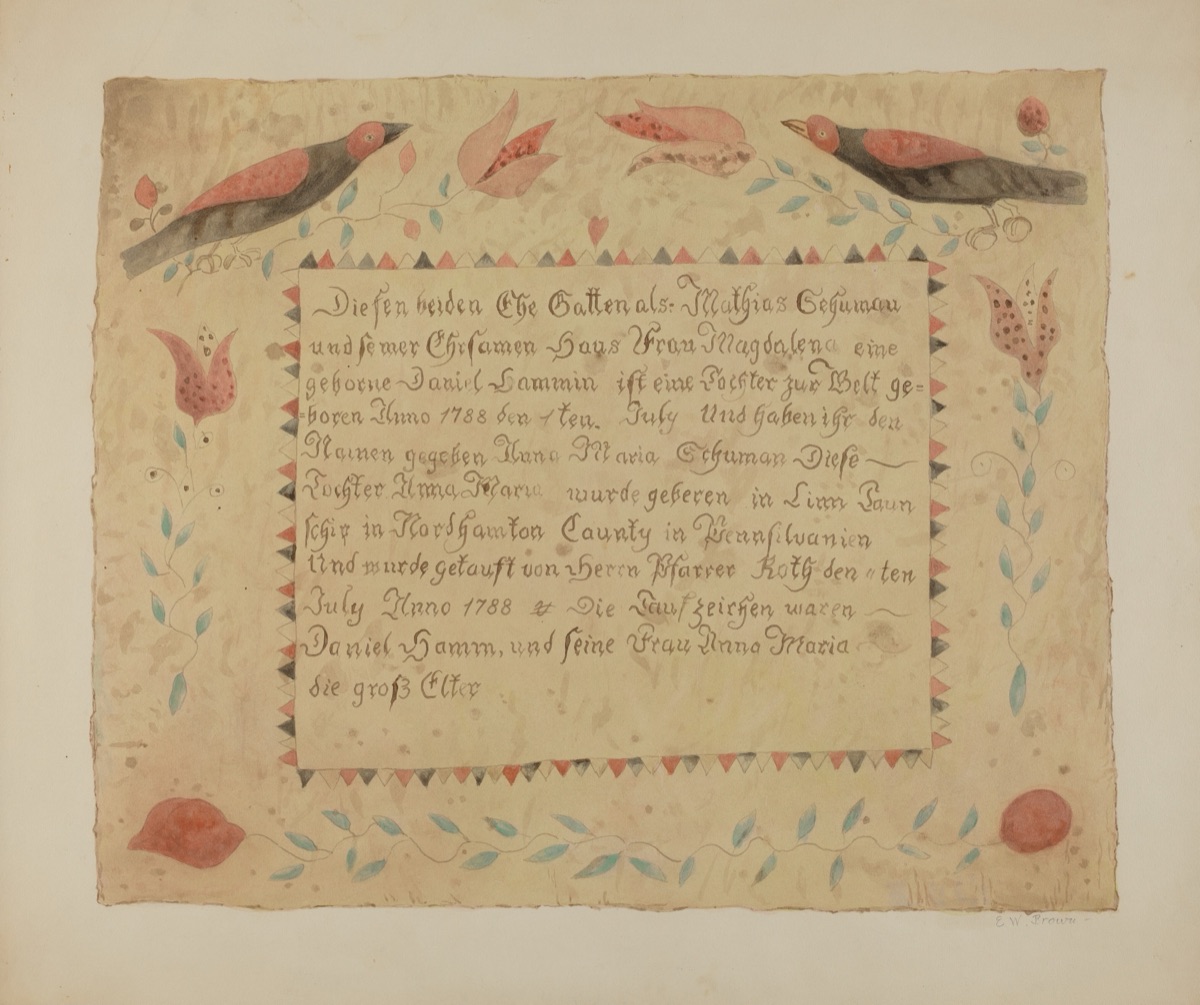 Diesen beiden Ehe Gatten als: Mathias Schuman
und seiner Ehrsamen Haus Frau Magdalena eine
geborne Daniel Hammin ist eine Tochter zur Welt ge=
=boren Anno 1788 den 1ten. July Und haben ihr den
Namen gegeben Anna Maria Schuman Diese
Tochter Anna Maria wurde geboren in Linn Taun
schip in Nordhamton Caunty in Pennsilvanien
Und wurde getauft von Herrn Pfarrer Roth den " ten
July Anno 1788 Die Taufzeichen waren
Daniel Hamm, und seine Frau Anna Maria
die groß Elter
E. W. Brown